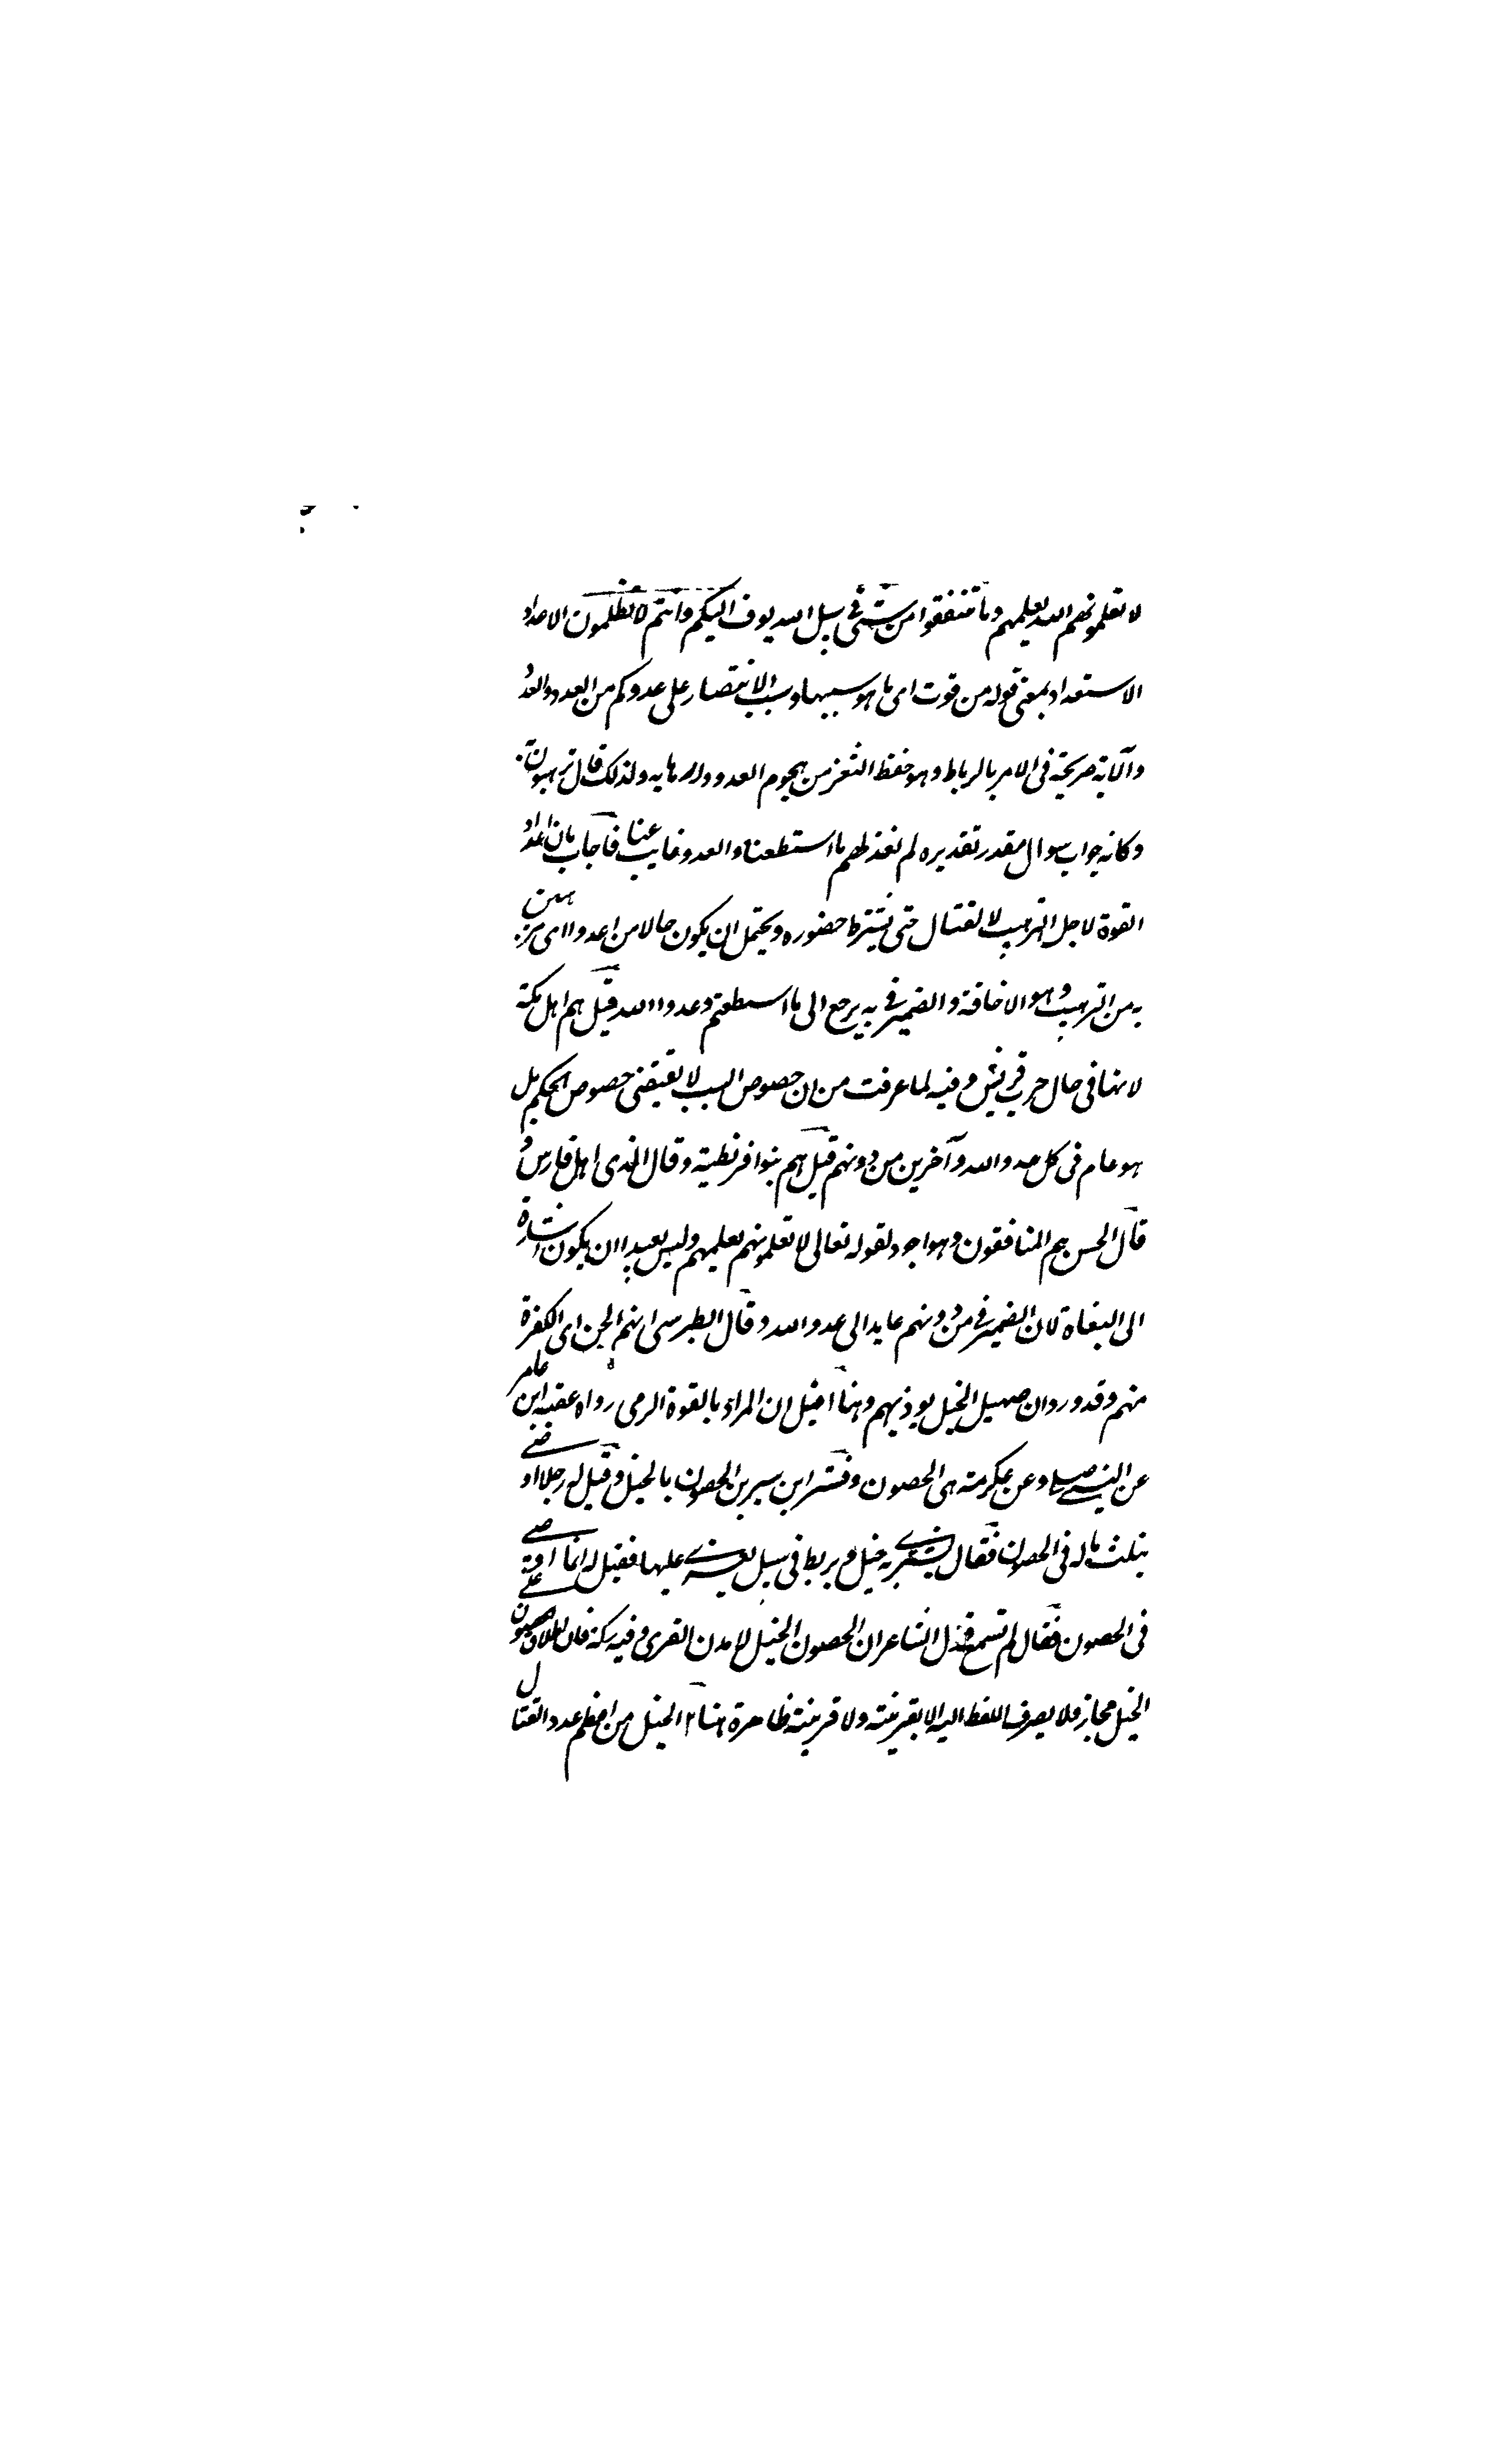 لا تعلمونهم الله يعلمهم وما تنفقوا من شئ في سبيل الله يوف اليكم وانتم لا تظلمون الاعداد
الاستعداد بمعنى قوله من قوت اى ما هو سببها وسبب الانتصار على عدوكم من العدد والعدد
والآية صريحة في الامر بالرباط وهو حفظ الثغر من هجوم العدو ولارهابه ولذلك قال ترهبون
وكانه جواب سوال مقدر تقديره لم نعد لهم ما استطعنا والعدو غايب عنا فاجاب بان اعداد
القوة لاجل الترهيب لا لقتال حتى يشترط حضوره ويحتمل ان يكون حالا من اعدوا اى مرهبين
به من الترهيب وهو الاخافة والضمير في به يرجع الى ما استطعتم وعدوا الله قيل هم اهل مكة
لانها في حال حرب قريش وفيه لما عرفت من ان خصوص السبب لا يقتضى خصوص الحكم بل
هو عام في كل عدو الله وآخرين من دونهم قيل هم بنوا قريظة وقال السدى اهل فارس و
قال الحسن هم المنافقون وهو اجود لقوله تعالى لا تعلمونهم يعلمهم وليس بعيدا ان يكون اشارة
الى البغاة لان الضمير في من دونهم عايد الى عدو الله وقال الطبرسى انهم الجن اى الكفرة
منهم وقد ورد ان صهيل الخيل يوذيهم وهنا ا قيل ان المراد بالقوة الرمى رواه عقبه ابن عامر
عن النبى وعن عكرمة هى الحصون وفسر ابن سيرين الحصون بالخيل وقيل له رجلا اوصى
بثلث ماله في الحصون فقال يشترى به خيل ويربط في سبيل يغزى عليها فقيل له انما اوصى
في الحصون فقال لم تسمع قول الشاعر ان الحصون الخيل لا مدن القرى وفيه فان اطلاق الحصون على
الخيل مجاز فلا يصرف اللفظ اليه الا بقرينة ولا قرينة ظاهرة هنا الخيل من اعظم عدد القتال